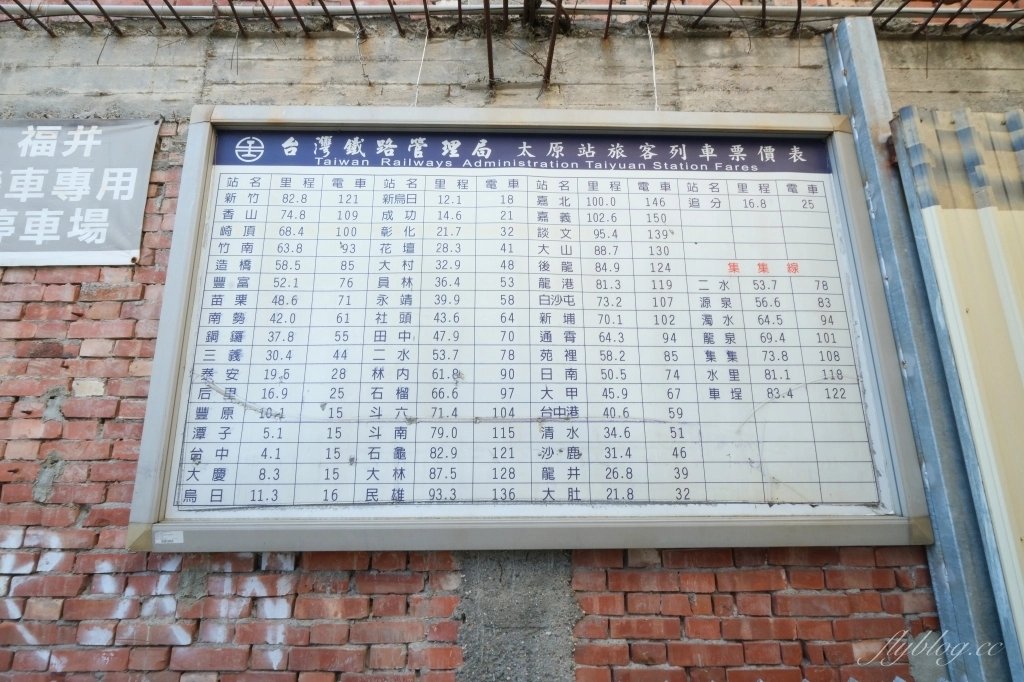 福井
車專用
停車場
台灣鐵路管理局 太原站旅客列車票價表
Taiwan Railways Administration Taiyuan Station Fares
站名 里程 電車 站名 里程 電車 站名 里程 電車 站名 里程 電車
新竹 82.8 121 新烏日 12.1 18 嘉北 100.0 146 追分 16.8 25
香山 74.8 109 成功 14.6 21 嘉義 102.6 150
崎頂 68.4 100 彰化 21.7 32 談文 95.4 139
竹南 63.8 93 花壇 28.3 41 大山 88.7 130
造橋 58.5 85 大村 32.9 48 後龍 84.9 124 集集線
豐富 52.1 76 員林 36.4 53 龍港 81.3 119 二水 53.7 78
苗栗 48.6 71 永靖 39.9 58 白沙屯 73.2 107 源泉 56.6 83
南勢 42.0 61 社頭 43.6 64 新埔 70.1 102 濁水 64.5 94
銅鑼 37.8 55 田中 47.9 70 通霄 64.3 94 龍泉 69.4 101
三義 30.4 44 二水 53.7 78 苑裡 58.2 85 集集 73.8 108
泰安 19.5 28 林內 61.8 90 日南 50.5 74 水里 81.1 118
后里 16.9 25 石榴 66.6 97 大甲 45.9 67 車埕 83.4 122
豐原 10.1 15 斗六 71.4 104 台中港 40.6 59
潭子 5.1 15 斗南 79.0 115 清水 34.6 51
台中 4.1 15 石龜 82.9 121 沙鹿 31.4 46
大慶 8.3 15 大林 87.5 128 龍井 26.8 39
烏日 11.3 16 民雄 93.3 136 大肚 21.8 32
flyblog.cc